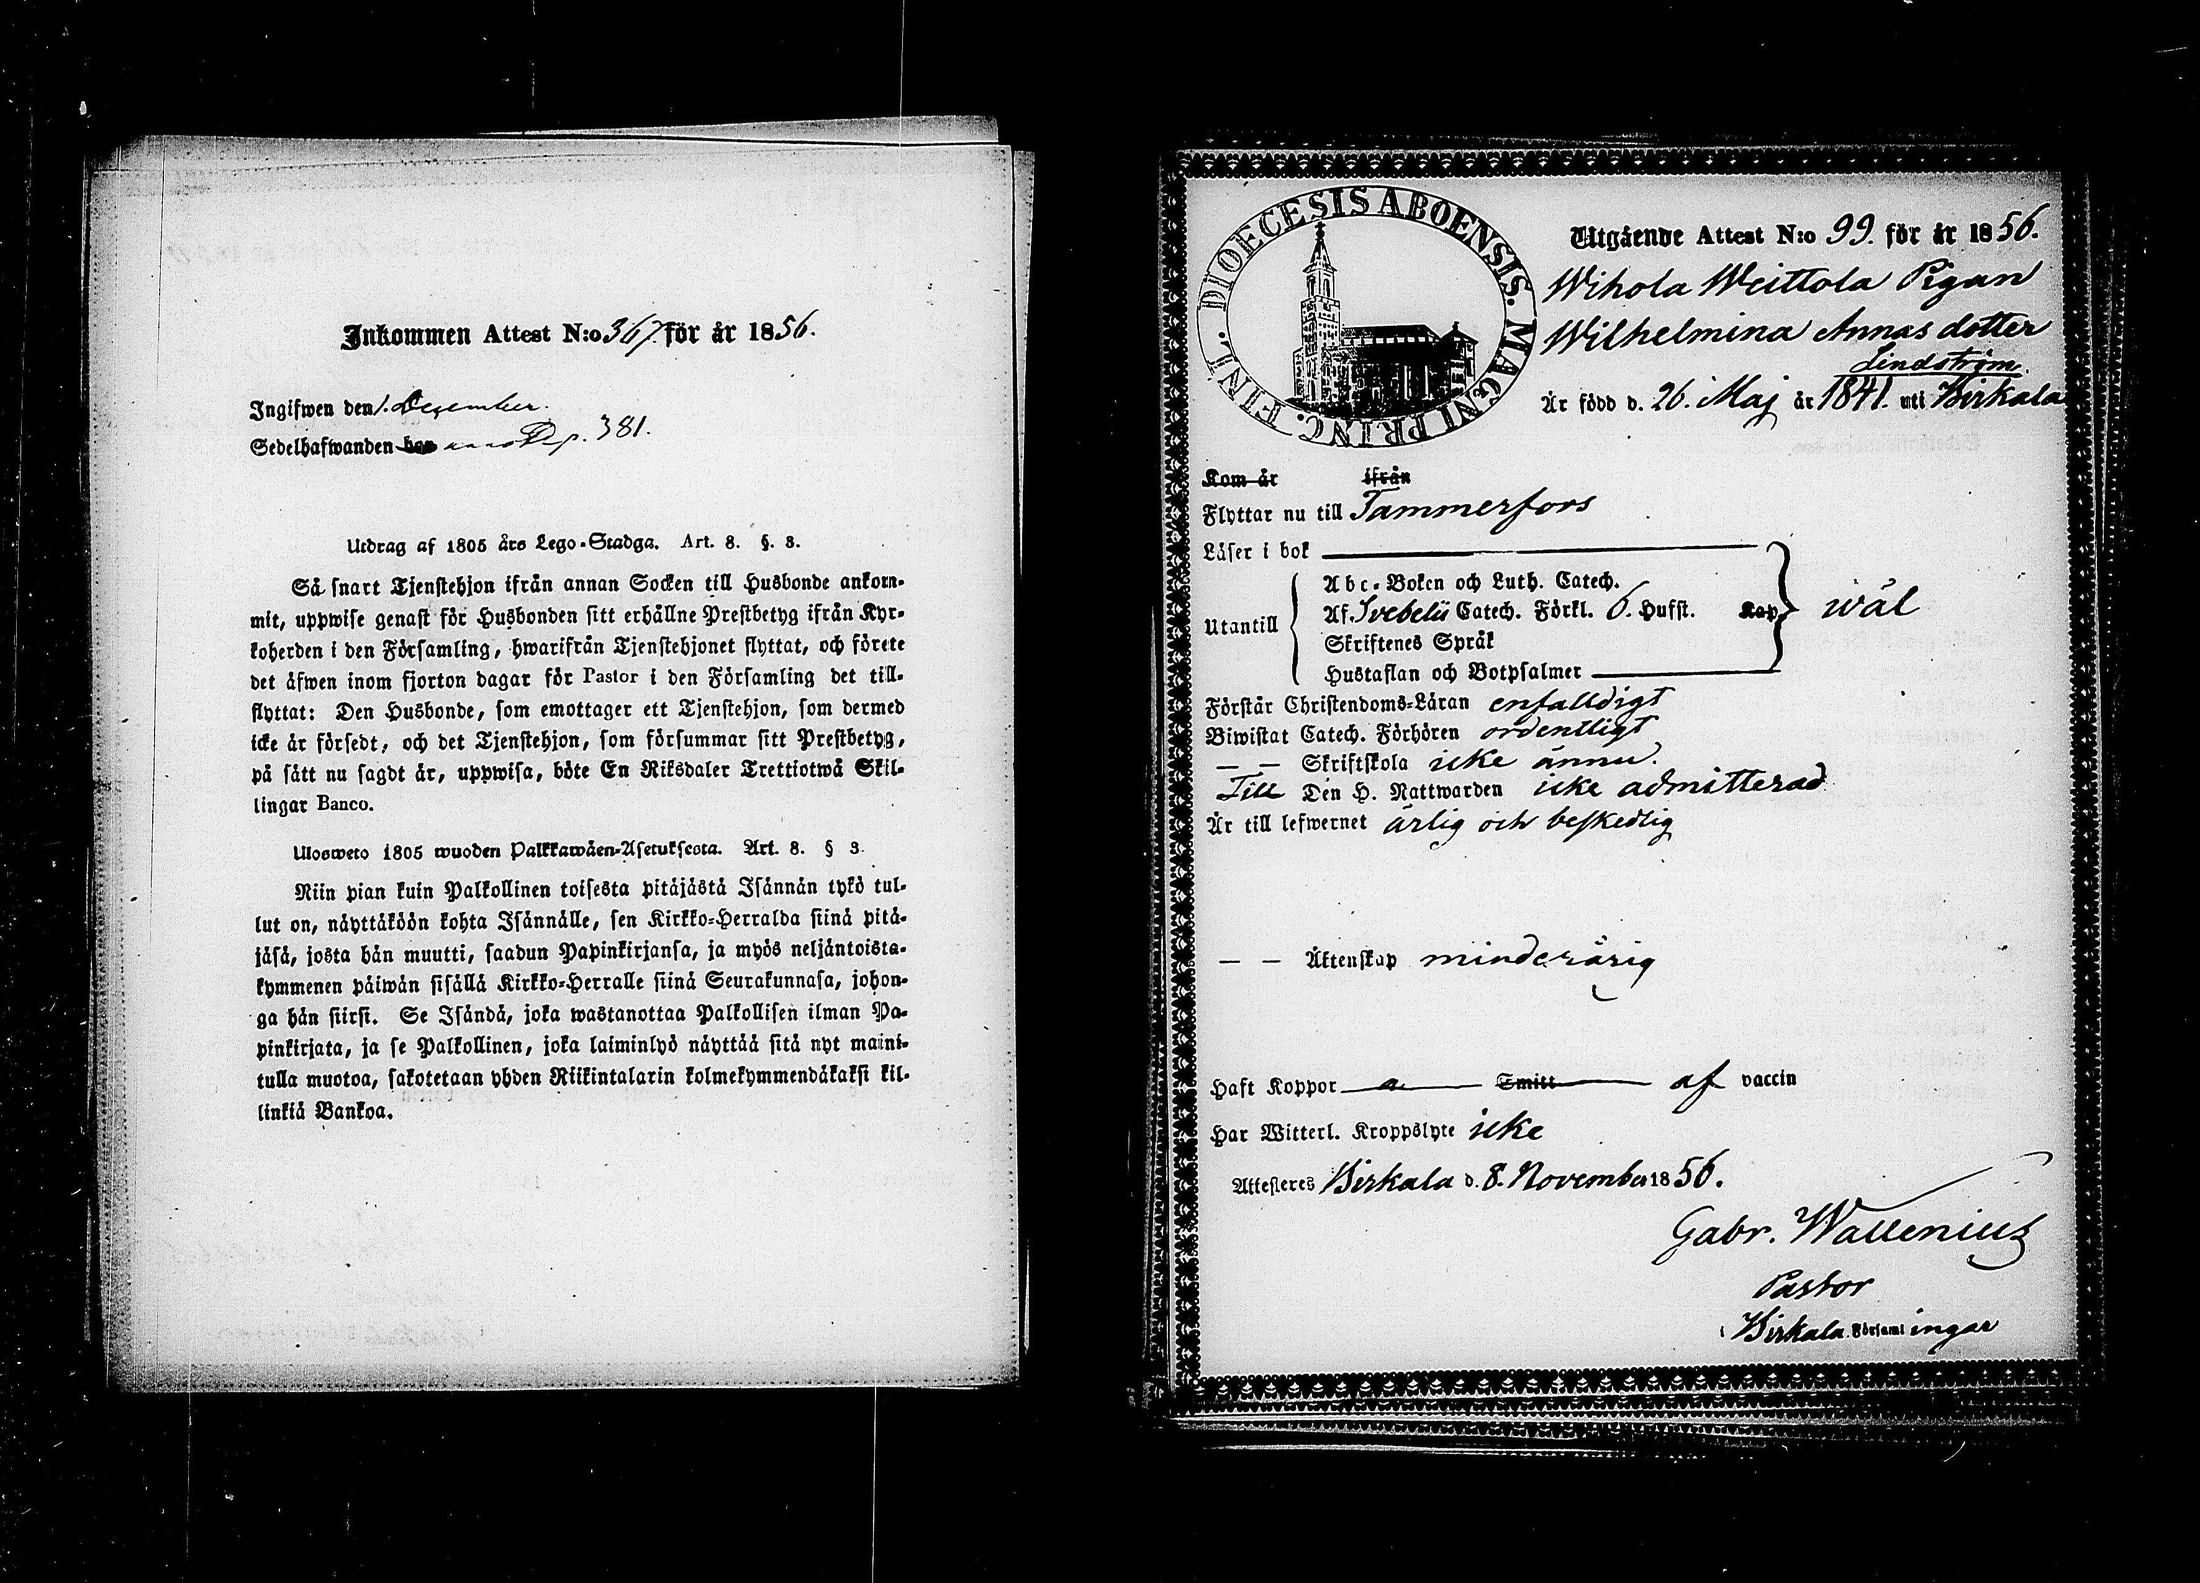 Inkommen Attest N:o 367. för år 1856.
Ingifwen den 1. December.
Sedelhafwanden p. 381.
Utdrag af 1805 års Lego-Stadga. Art. 8. §. 3.
Så snart Tjenstehjon ifrån annan Socken till Husbonde ankom-
mit, uppwise genast för Husbonden sitt erhållne Prestbetyg ifrån Kyr-
koherden i den Församling, hwarifrån Tjenstehjonet flyttat, och förete
det äfwen inom fjorton dagar för Pastor i den Församling det till-
flyttat: Den Husbonde, som emottager ett Tjenstehjon, som dermed
icke är försedt, och det Tjenstehjon, som försummar sitt Prestbetyg,
på sätt nu sagdt är, uppwisa, böte En Riksdaler Trettiotwå Skil-
lingar Banco.
Ulosweto 1805 wuoden Palkkawäen-Asetuksesta. Art. 8. § 3.
Niin pian kuin Palkollinen toisesta pitäjästä Isännän tykö tul-
lut on, näyttäköön kohta Isännälle, sen Kirkko-Herralda siinä pitä-
jäsä, josta hän muutti, saadun Papinkirjansa, ja myös neljäntoista-
kymmenen päiwän sisällä Kirkko-Herralle siinä Seurakunnasa, johon-
ga hän siirsi. Se Isändä, joka wastanottaa Palkollisen ilman Pa-
pinkirjata, ja se Palkollinen, joka laiminlyö näyttää sitä nyt maini-
tulla muotoa, sakotetaan yhden Riikintalarin kolmekymmendäkaksi kil-
linkiä Bankoa.
DIOECESIS ABOENSIS. MAGNI PRINC. FINL.
Utgående Attest N:o 99. för år 1856.
Wihola Weittola Pigan
Wilhelmina Annas dotter
Lindström.
Är född d. 26. Maj år 1841. uti Birkala
Kom år ifrån
Flyttar nu till Tammerfors
Läser i bok
Utantill
Abc-Boken och Luth. Catech.
Af Svebelii Catech. Förkl. 6. Hufst. Kap
Skriftenes Språk
Hustaflan och Botpsalmer
wäl
Förstår Christendoms-Läran enfalldigt
Biwistat Catech. Förhören ordentligt
— — Skriftskola icke ännu.
Till Den H. Nattwarden icke admitterad
Är till lefwernet ärlig och beskedlig
— — Äktenskap minderårig
Haft Koppor a Smitt af vaccin
Har Witterl. Kroppslyte icke
Attesteres Birkala d. 8. November 1856.
Gabr. Wallenius
Pastor
i Birkala Församlingar